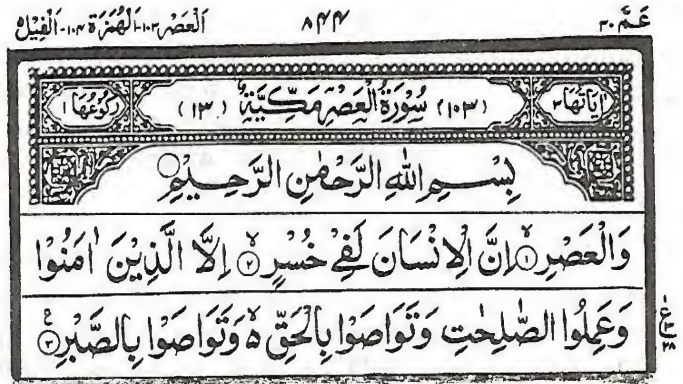 عَـمَّ ٣٠ ٨٤٤ اَلْعَصْر١٠٣-اَلْهُمَزَة١٠٤-اَلْفِيْل٥
اٰيَاتُهَا٣ (١٠٣) سُوْرَةُ الْعَصْرِ مَكِّيَّةٌ (١٣) رُكُوْعُهَا١
بِسْـمِ اللّٰهِ الرَّحْمٰنِ الرَّحِـيْمِ
وَالْعَصْرِ ۙ﴿١﴾ اِنَّ الْاِنْسَانَ لَفِيْ خُسْرٍ ۙ﴿٢﴾ اِلَّا الَّذِيْنَ اٰمَنُوْا
وَعَمِلُوا الصّٰلِحٰتِ وَتَوَاصَوْا بِالْحَقِّ ۙ۬ وَتَوَاصَوْا بِالصَّبْرِ ﴿٣﴾ ع